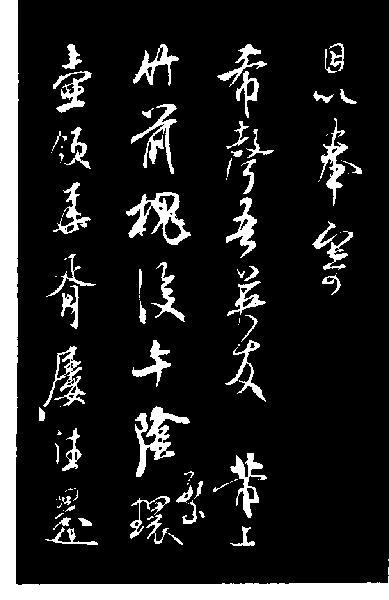 因以奉寄可
希聲吾英友　芾上
竹前槐後午陰環繁
壺領華胥屢往還